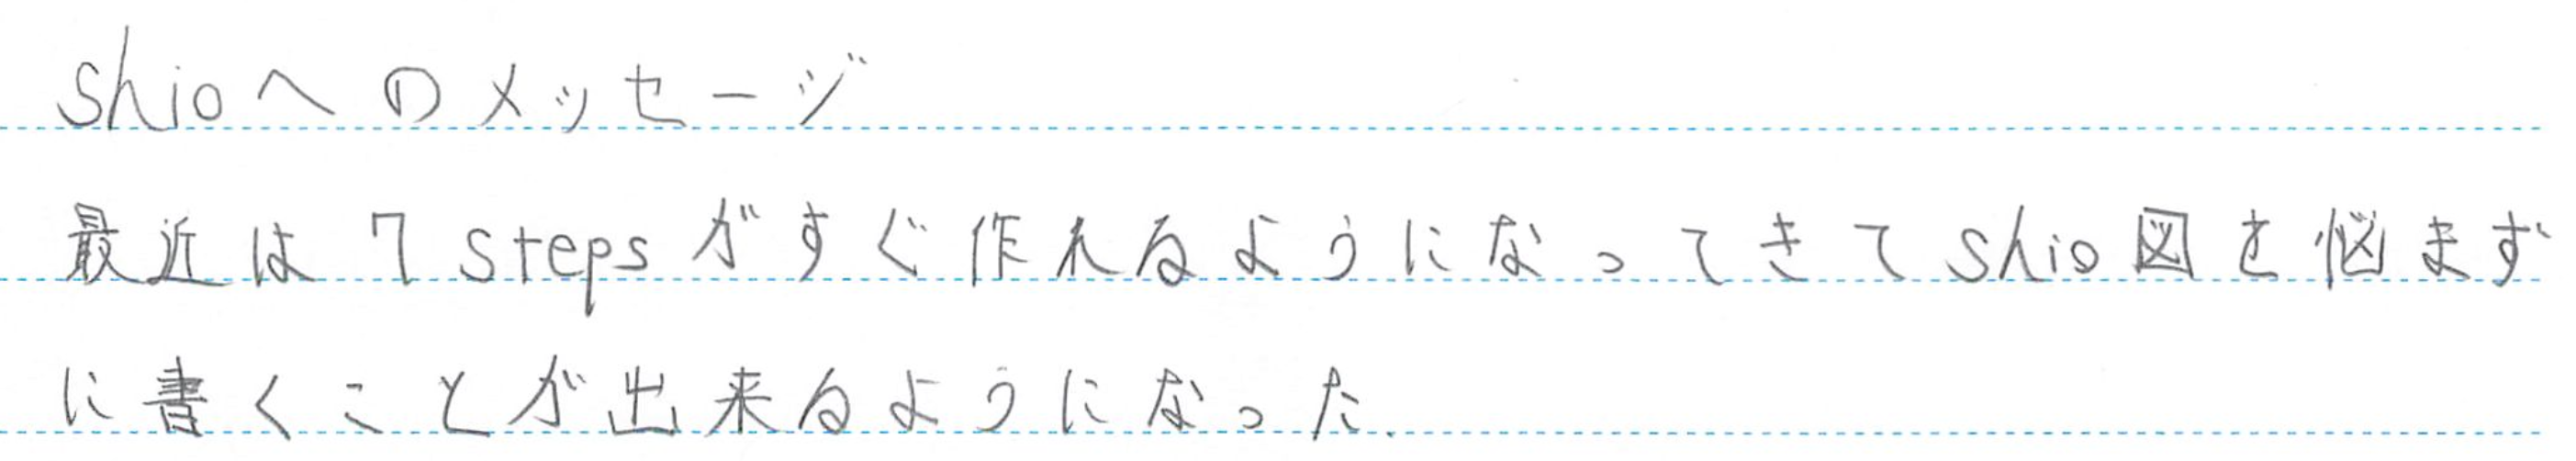 shioへのメッセージ
最近は7stepsがすぐ作れるようになってきてshio図を悩まず
に書くことが出来るようになった.